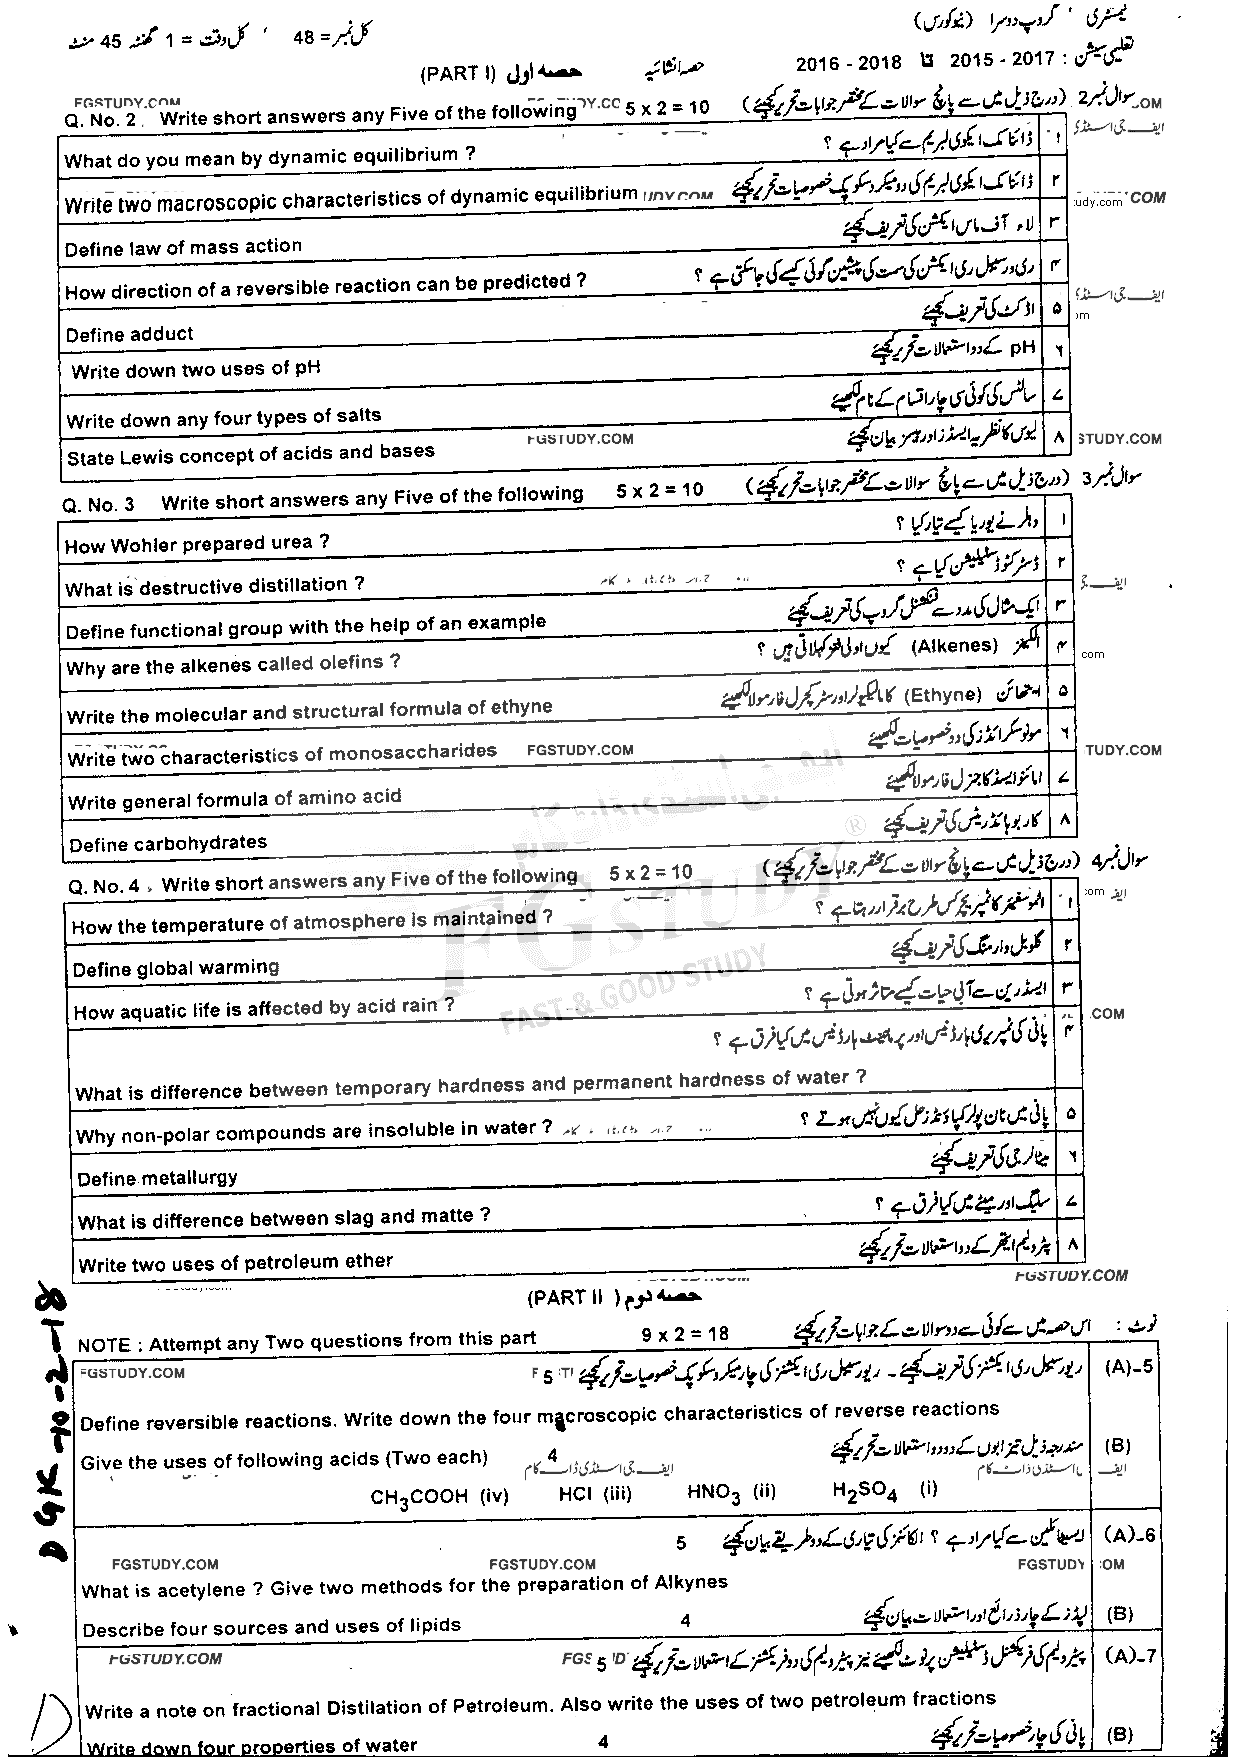 کیمسٹری ، گروپ دوسرا (نیو کورس)
کل نمبر = 48 ، کل وقت = 1 گھنٹہ 45 منٹ
تعلیمی سیشن : 2017 - 2015 تا 2018 - 2016
حصہ انشائیہ حصہ اول (PART I)
FGSTUDY.COM
سوال نمبر 2 (درج ذیل میں سے پانچ سوالات کے مختصر جوابات تحریر کیجئے)
Q. No. 2 Write short answers any Five of the following 5 x 2 = 10
۱ ڈائنامک ایکوی لبریم سے کیا مراد ہے ؟
What do you mean by dynamic equilibrium ?
۲ ڈائنامک ایکوی لبریم کی دو میکروسکوپک خصوصیات تحریر کیجئے
Write two macroscopic characteristics of dynamic equilibrium
۳ لاء آف ماس ایکشن کی تعریف کیجئے
Define law of mass action
۴ ری ورسیبل ری ایکشن کی سمت کی پیشین گوئی کیسے کی جاسکتی ہے ؟
How direction of a reversible reaction can be predicted ?
۵ اڈکٹ کی تعریف کیجئے
Define adduct
۶ pH کے دو استعمالات تحریر کیجئے
Write down two uses of pH
۷ سالٹس کی کوئی سی چار اقسام کے نام لکھیئے
Write down any four types of salts
۸ لیوس کا نظریہ ایسڈز اور بیسز بیان کیجئے
FGSTUDY.COM STUDY.COM
State Lewis concept of acids and bases
سوال نمبر 3 (درج ذیل میں سے پانچ سوالات کے مختصر جوابات تحریر کیجئے)
Q. No. 3 Write short answers any Five of the following 5 x 2 = 10
۱ وہلر نے یوریا کیسے تیار کیا ؟
How Wohler prepared urea ?
۲ ڈسٹرکٹو ڈسٹیلیشن کیا ہے ؟
What is destructive distillation ?
۳ ایک مثال کی مدد سے فنکشنل گروپ کی تعریف کیجئے
Define functional group with the help of an example
۴ الکینز (Alkenes) کیوں اولی فنز کہلاتی ہیں ؟
com
Why are the alkenes called olefins ?
۵ ایتھائن (Ethyne) کا مالیکیولر اور سٹرکچرل فارمولا لکھیئے
Write the molecular and structural formula of ethyne
۶ مونوسکرائڈز کی دو خصوصیات لکھیئے
Write two characteristics of monosaccharides FGSTUDY.COM TUDY.COM
۷ امائنو ایسڈ کا جنرل فارمولا لکھیئے
Write general formula of amino acid
۸ کاربوہائڈریٹس کی تعریف کیجئے
Define carbohydrates
سوال نمبر 4 (درج ذیل میں سے پانچ سوالات کے مختصر جوابات تحریر کیجئے)
Q. No. 4 Write short answers any Five of the following 5 x 2 = 10
۱ اٹموسفیئر کا ٹمپریچر کس طرح برقرار رہتا ہے ؟
How the temperature of atmosphere is maintained ?
FGSTUDY ®
۲ گلوبل وارمنگ کی تعریف کیجئے
Define global warming
FAST & GOOD STUDY
۳ ایسڈ رین سے آبی حیات کیسے متاثر ہوتی ہے ؟
How aquatic life is affected by acid rain ?
.COM
۴ پانی کی ٹمپریری ہارڈنیس اور پرماننٹ ہارڈنیس میں کیا فرق ہے ؟
What is difference between temporary hardness and permanent hardness of water ?
۵ پانی میں نان پولر کمپاؤنڈز حل کیوں نہیں ہوتے ؟
Why non-polar compounds are insoluble in water ?
۶ میٹالرجی کی تعریف کیجئے
Define metallurgy
۷ سلیگ اور میٹے میں کیا فرق ہے ؟
What is difference between slag and matte ?
۸ پٹرولیم ایتھر کے دو استعمالات تحریر کیجئے
Write two uses of petroleum ether
FGSTUDY.COM
حصہ دوم (PART II)
نوٹ : اس حصہ میں سے کوئی سے دو سوالات کے جوابات تحریر کیجئے
NOTE : Attempt any Two questions from this part 9 x 2 = 18
5-(A) ریورسیبل ری ایکشنز کی تعریف کیجئے - ریورسیبل ری ایکشنز کی چار میکروسکوپک خصوصیات تحریر کیجئے 5
FGSTUDY.COM
Define reversible reactions. Write down the four macroscopic characteristics of reverse reactions
(B) مندرجہ ذیل تیزابوں کے دو دو استعمالات تحریر کیجئے
Give the uses of following acids (Two each) 4
ایف جی اسٹڈی ڈاٹ کام
CH3COOH (iv) HCl (iii) HNO3 (ii) H2SO4 (i)
6-(A) ایسیٹائیلین سے کیا مراد ہے ؟ الکائنز کی تیاری کے دو طریقے بیان کیجئے 5
FGSTUDY.COM FGSTUDY.COM FGSTUDY.COM
What is acetylene ? Give two methods for the preparation of Alkynes
(B) لپڈز کے چار ذرائع اور استعمالات بیان کیجئے
Describe four sources and uses of lipids 4
7-(A) پیٹرولیم کی فریکشنل ڈسٹیلیشن پر نوٹ لکھیئے نیز پیٹرولیم کی دو فریکشنز کے استعمالات تحریر کیجئے 5
FGSTUDY.COM
Write a note on fractional Distilation of Petroleum. Also write the uses of two petroleum fractions
(B) پانی کی چار خصوصیات تحریر کیجئے
Write down four properties of water 4
DGK-10-2-18